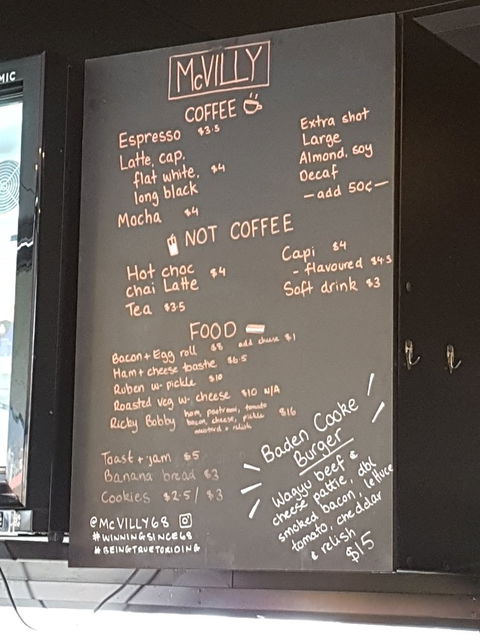 MIC
McVILLY
COFFEE
Espresso $3.5
Latte, cap,
flat white, $4
long black
Mocha $4
Extra shot
Large
Almond, soy
Decaf
— add 50¢ —
NOT COFFEE
Hot choc
Chai Latte $4
Tea $3.5
Capi $4
- flavoured $4.5
Soft drink $3
FOOD
Bacon + Egg roll $8 add cheese $1
Ham + cheese toastie $6.5
Ruben w- pickle $10
Roasted Veg w- cheese $10 N/A
Ricky Bobby ham, pastrami, tomato $16
bacon, cheese, pickle
mustard + relish
Toast + jam $5
Banana bread $3
Cookies $2.5 / $3
Baden Cooke
Burger
Wagyu beef &
cheese pattie, dbl
smoked bacon, lettuce
tomato, cheddar
& relish
$15
@McVILLY68
#WINNINGSINCE68
#BEINGTRUETORIDING